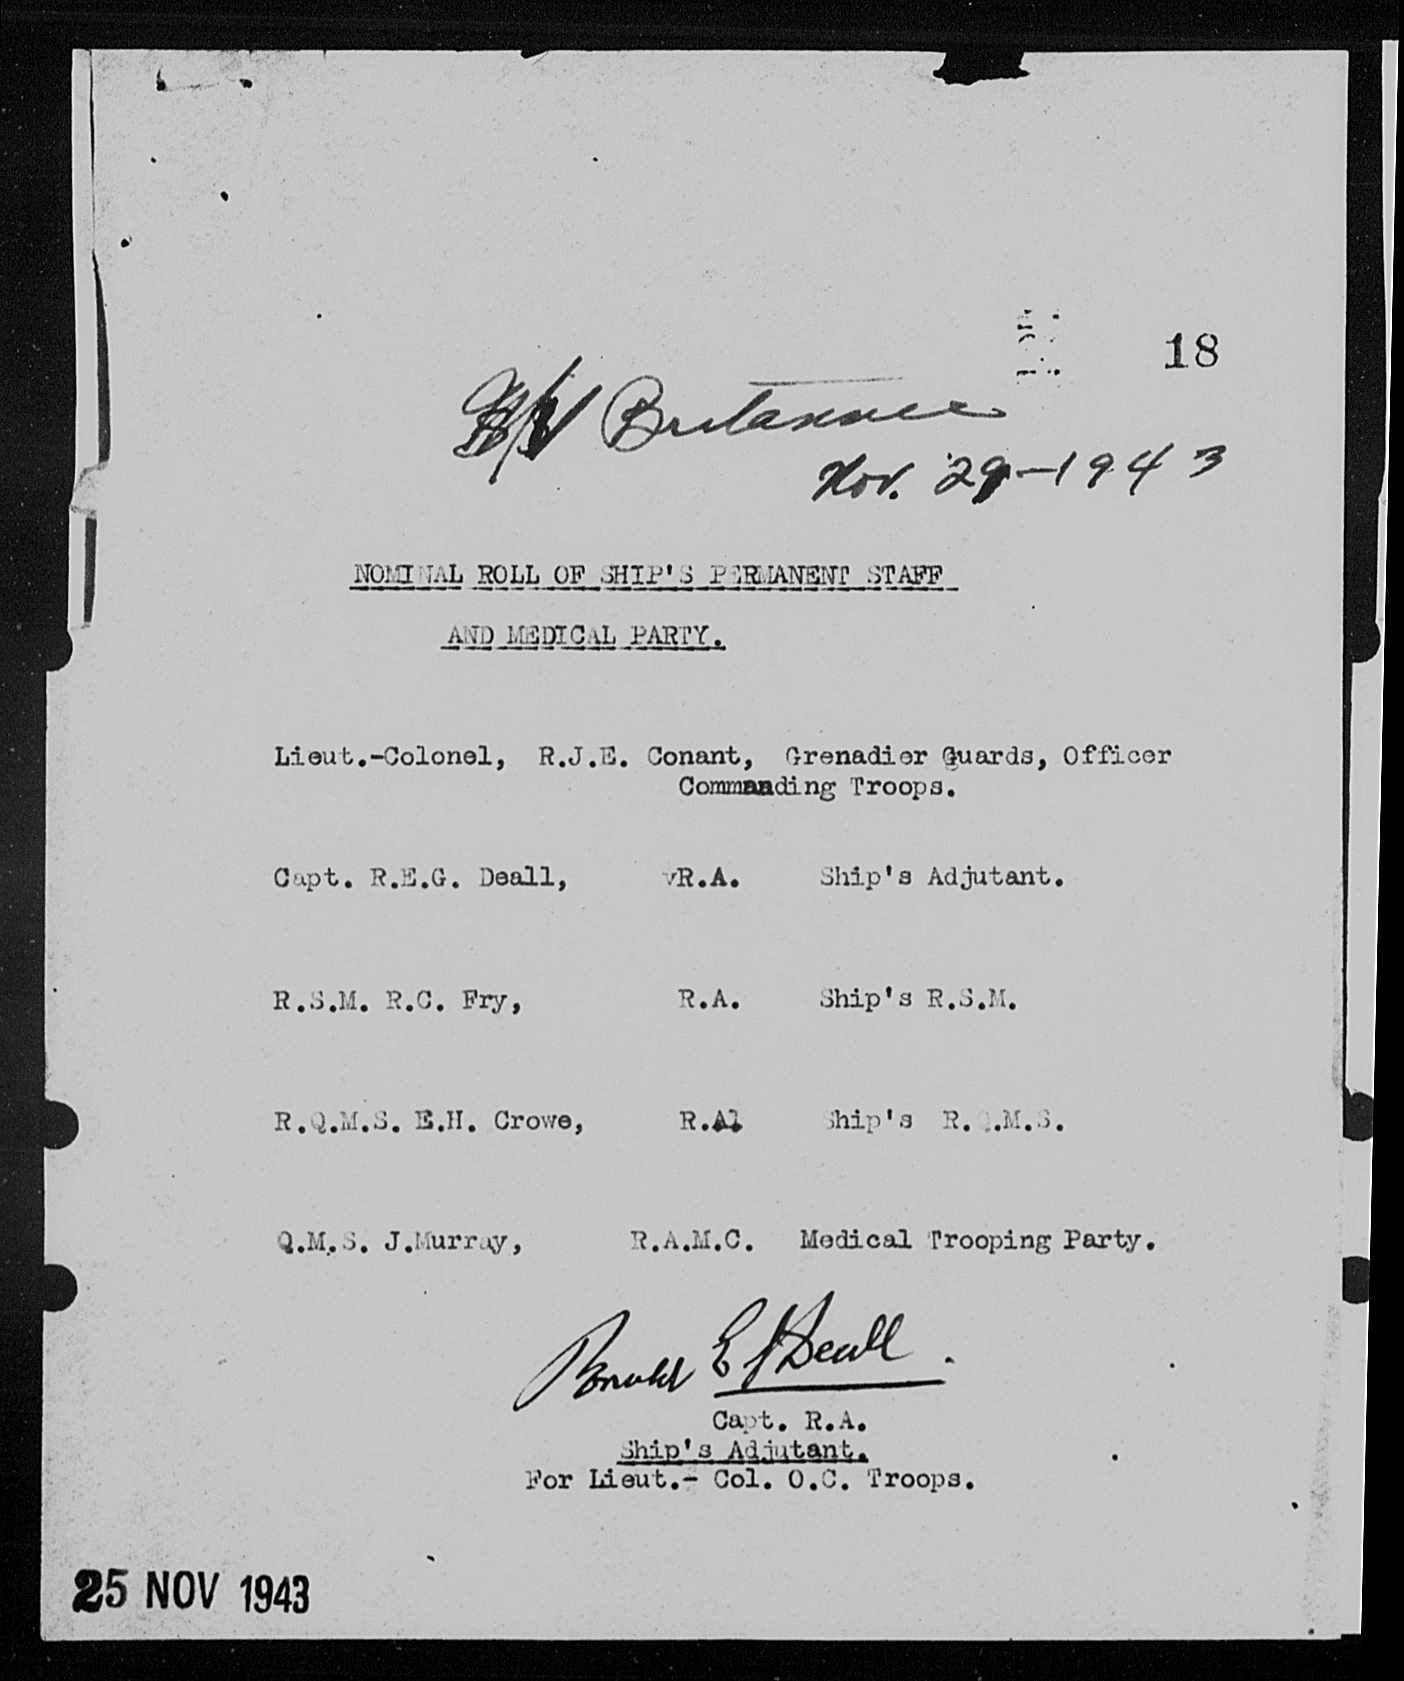 18
Britannic
Nov. 29-1943
NOMINAL ROLL OF SHIP'S PERMANENT STAFF
AND MEDICAL PARTY.
Lieut.-Colonel, R.J.E. Conant, Grenadier Guards, Officer
Commanding Troops.
Capt. R.E.G. Deall, R.A. Ship's Adjutant.
R.S.M. R.C. Fry, R.A. Ship's R.S.M.
R.Q.M.S. E.H. Crowe, R.A. Ship's R.Q.M.S.
Q.M.S. J.Murray, R.A.M.C. Medical Trooping Party.
Ronald E G Deall.
Capt. R.A.
Ship's Adjutant.
For Lieut.- Col. O.C. Troops.
25 NOV 1943